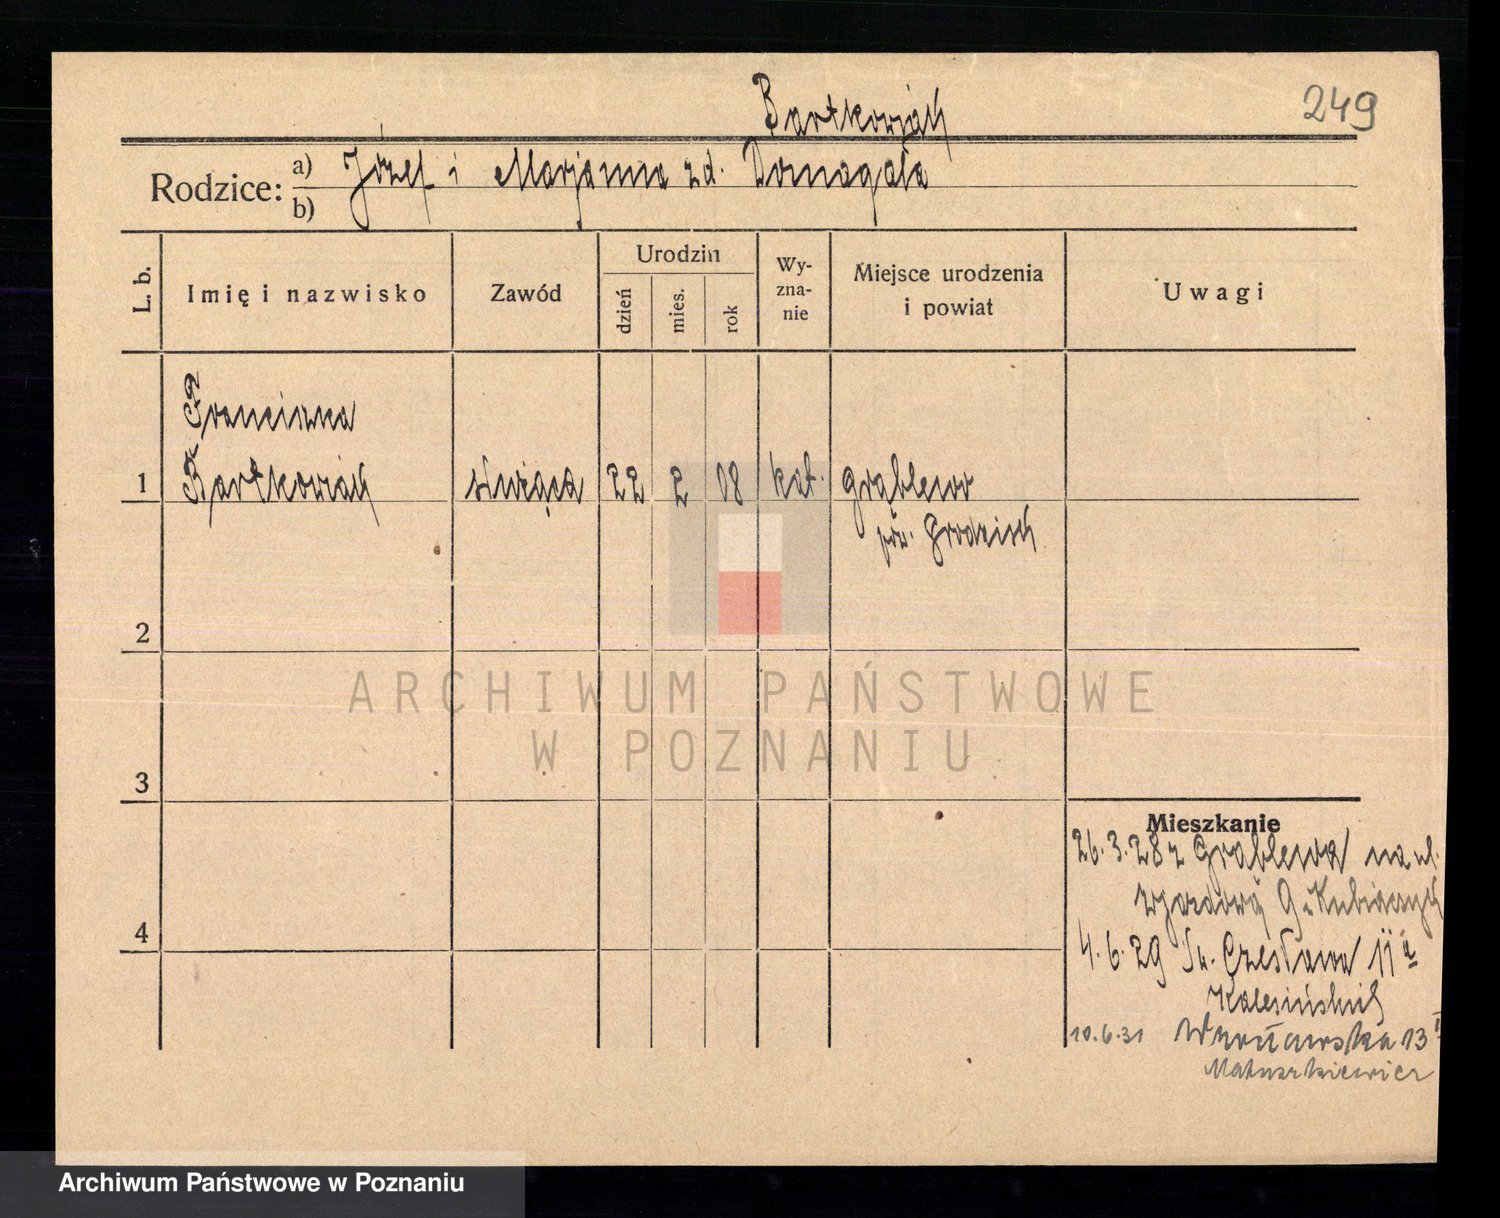 Bartkowiak
249
Rodzice: a) Józef i Marjanna z d. Domagała
b)
L. b.
Imię i nazwisko
Zawód
Urodzin
dzień
mies.
rok
Wy-
zna-
nie
Miejsce urodzenia
i powiat
Uwagi
Franciszka
1 Bartkowiak służąca 22 2 08 kat. Grąblewo
pow. Grodzisk
2
3
4
Mieszkanie
26.3.28 z Grąblewa na ul.
Zjazdową 9 u
4.6.29 Św. Czesława 11 a
10.6.31 Wrocławska 13 I
Matuszkiewicz
ARCHIWUM PAŃSTWOWE
W POZNANIU
Archiwum Państwowe w Poznaniu